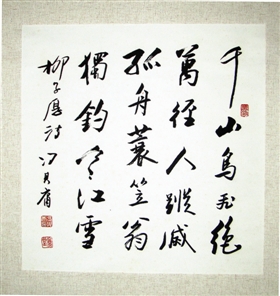 千山鳥飛絕
萬徑人蹤滅
孤舟蓑笠翁
獨釣寒江雪
柳子厚詩 冯其庸